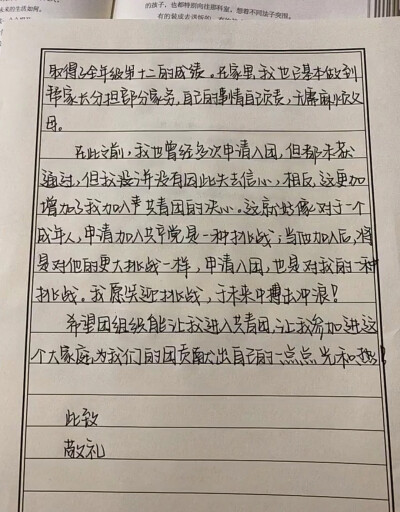 的孩子，也都特别向往那科室，想着不同法子突围。
未来的生活如何。
取得了全年级第十二的成绩。在家里，我也已基本做到
帮家长分担部分家务，自己的事情自己负责，无需麻烦父
母。
在此之前，我也曾经多次申请入团，但都未获
通过，但我没并没有因此失去信心，相反，这更加
增加了我加入共青团的决心。这就好像对于一个
成年人，申请加入共产党是一种挑战；当加入后，将
是对他的更大挑战一样，申请入团，也是对我的一种
挑战。我愿笑迎挑战，于未来中搏击冲浪！
希望团组级能让我进入共青团，让我参加进这
个大家庭，为我们的团贡献出自己的一点点光和热！
此致
敬礼